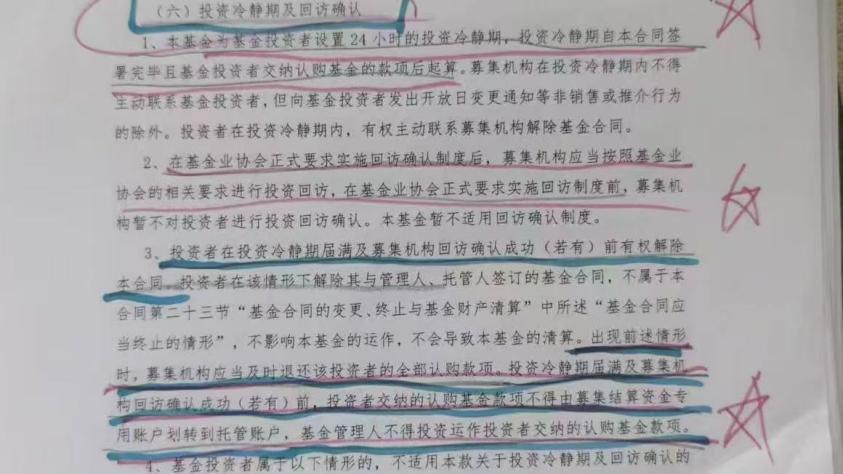 （六）投资冷静期及回访确认
1、本基金为基金投资者设置 24 小时的投资冷静期，投资冷静期自本合同签
署完毕且基金投资者交纳认购基金的款项后起算。募集机构在投资冷静期内不得
主动联系基金投资者，但向基金投资者发出开放日变更通知等非销售或推介行为
的除外。投资者在投资冷静期内，有权主动联系募集机构解除基金合同。
2、在基金业协会正式要求实施回访确认制度后，募集机构应当按照基金业
协会的相关要求进行投资回访，在基金业协会正式要求实施回访制度前，募集机
构暂不对投资者进行投资回访确认。本基金暂不适用回访确认制度。
3、投资者在投资冷静期届满及募集机构回访确认成功（若有）前有权解除
本合同。投资者在该情形下解除其与管理人、托管人签订的基金合同，不属于本
合同第二十三节“基金合同的变更、终止与基金财产清算”中所述“基金合同应
当终止的情形”，不影响本基金的运作，不会导致本基金的清算。出现前述情形
时，募集机构应当及时退还该投资者的全部认购款项。投资冷静期届满及募集机
构回访确认成功（若有）前，投资者交纳的认购基金款项不得由募集结算资金专
用账户划转到托管账户，基金管理人不得投资运作投资者交纳的认购基金款项。
4、基金投资者属于以下情形的，不适用本款关于投资冷静期及回访确认的